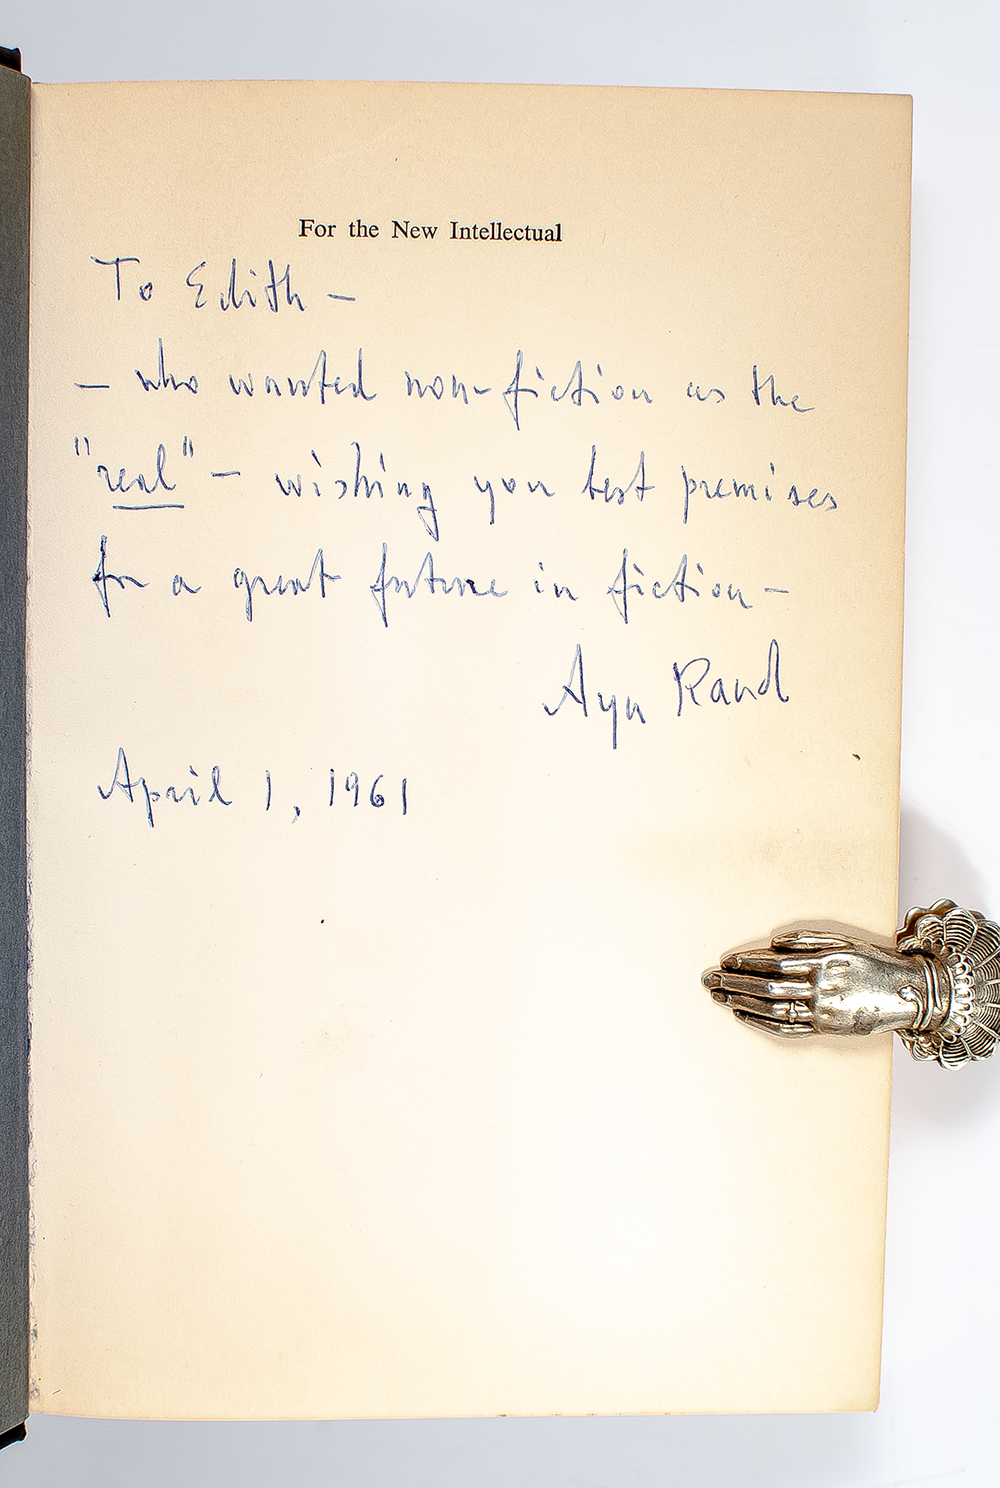 For the New Intellectual
To Edith —
— who wanted non-fiction as the
"real" — wishing you best premises
for a great future in fiction —
Ayn Rand
April 1, 1961